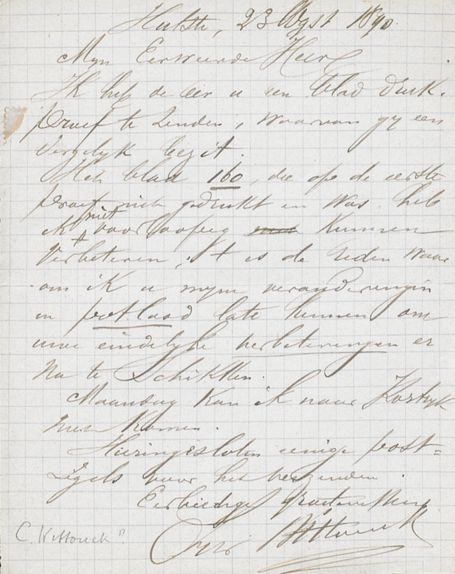 Hulste, 23 Ogst 1890.
Myn Eerweerde Heer
Ik heb de eer u een blad druk-
proef te zenden, waarvan gy een
vergelyk bezit.
Het blad 160, die op de eerste
proef niet gedrukt en was heb
ik niet voorloopig kunnen
verbeteren, 't is de reden waar
om ik u myn veranderingen
in potlood late kennen om
uwe eindelyke verbeteringen er
na te schikken.
Maandag kan ik naar Kortryk
niet komen.
Hieringesloten eenige post-
zegels voor het verzenden.
Eerbiedige groetenissen
C. Wittouck?